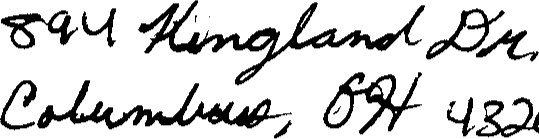 894 Kingland Dr.
Columbus, OH 432